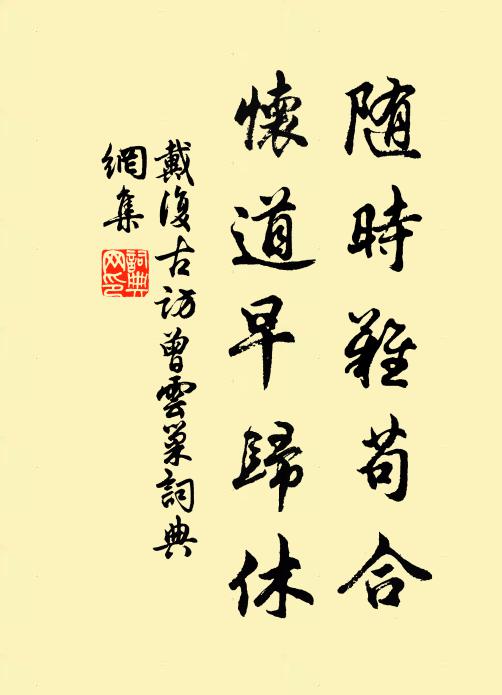 随時難苟合
懷道早歸休
戴復古訪曾雲巢詞典
網集
詞典
网印